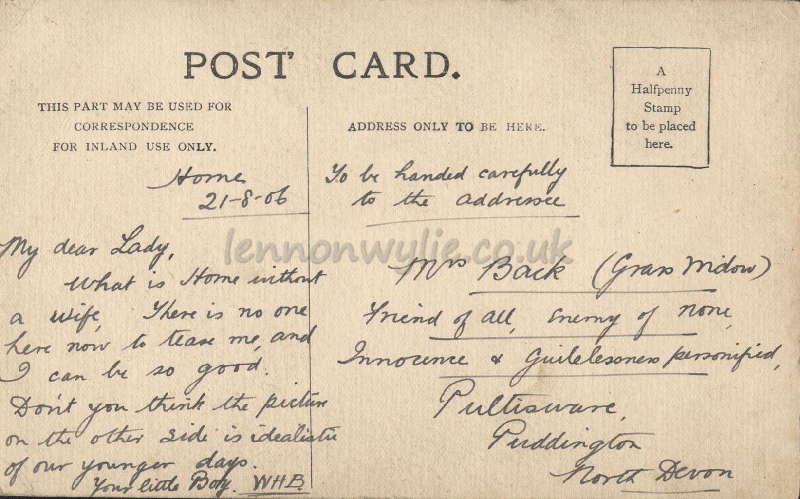 POST CARD.
THIS PART MAY BE USED FOR
CORRESPONDENCE
FOR INLAND USE ONLY.
ADDRESS ONLY TO BE HERE.
A
Halfpenny
Stamp
to be placed
here.
Home
21-8-06
My dear Lady,
What is Home without
a wife, There is no one
here now to tease me, and
I can be so good.
Don't you think the picture
on the other side is idealistic
of our younger days.
Your little Boy. WHB.
To be handed carefully
to the addressee
Mrs Back (Grass Widow)
Friend of all, Enemy of none,
Innocence & Guilelessness personified,
Puddington
North Devon
lennonwylie.co.uk